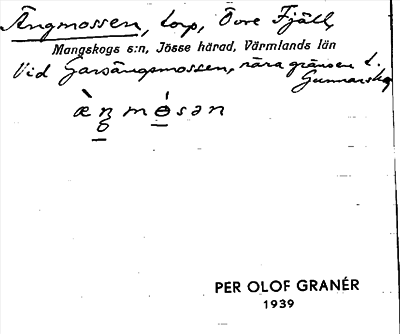 Ängmossen, torp, Övre Fjäll,
Mangskogs s:n, Jösse härad, Värmlands län
Vid Garsängsmossen, nära gränsen t.
Gunnarskog
æ̀ŋ mósən
PER OLOF GRANÉR
1939